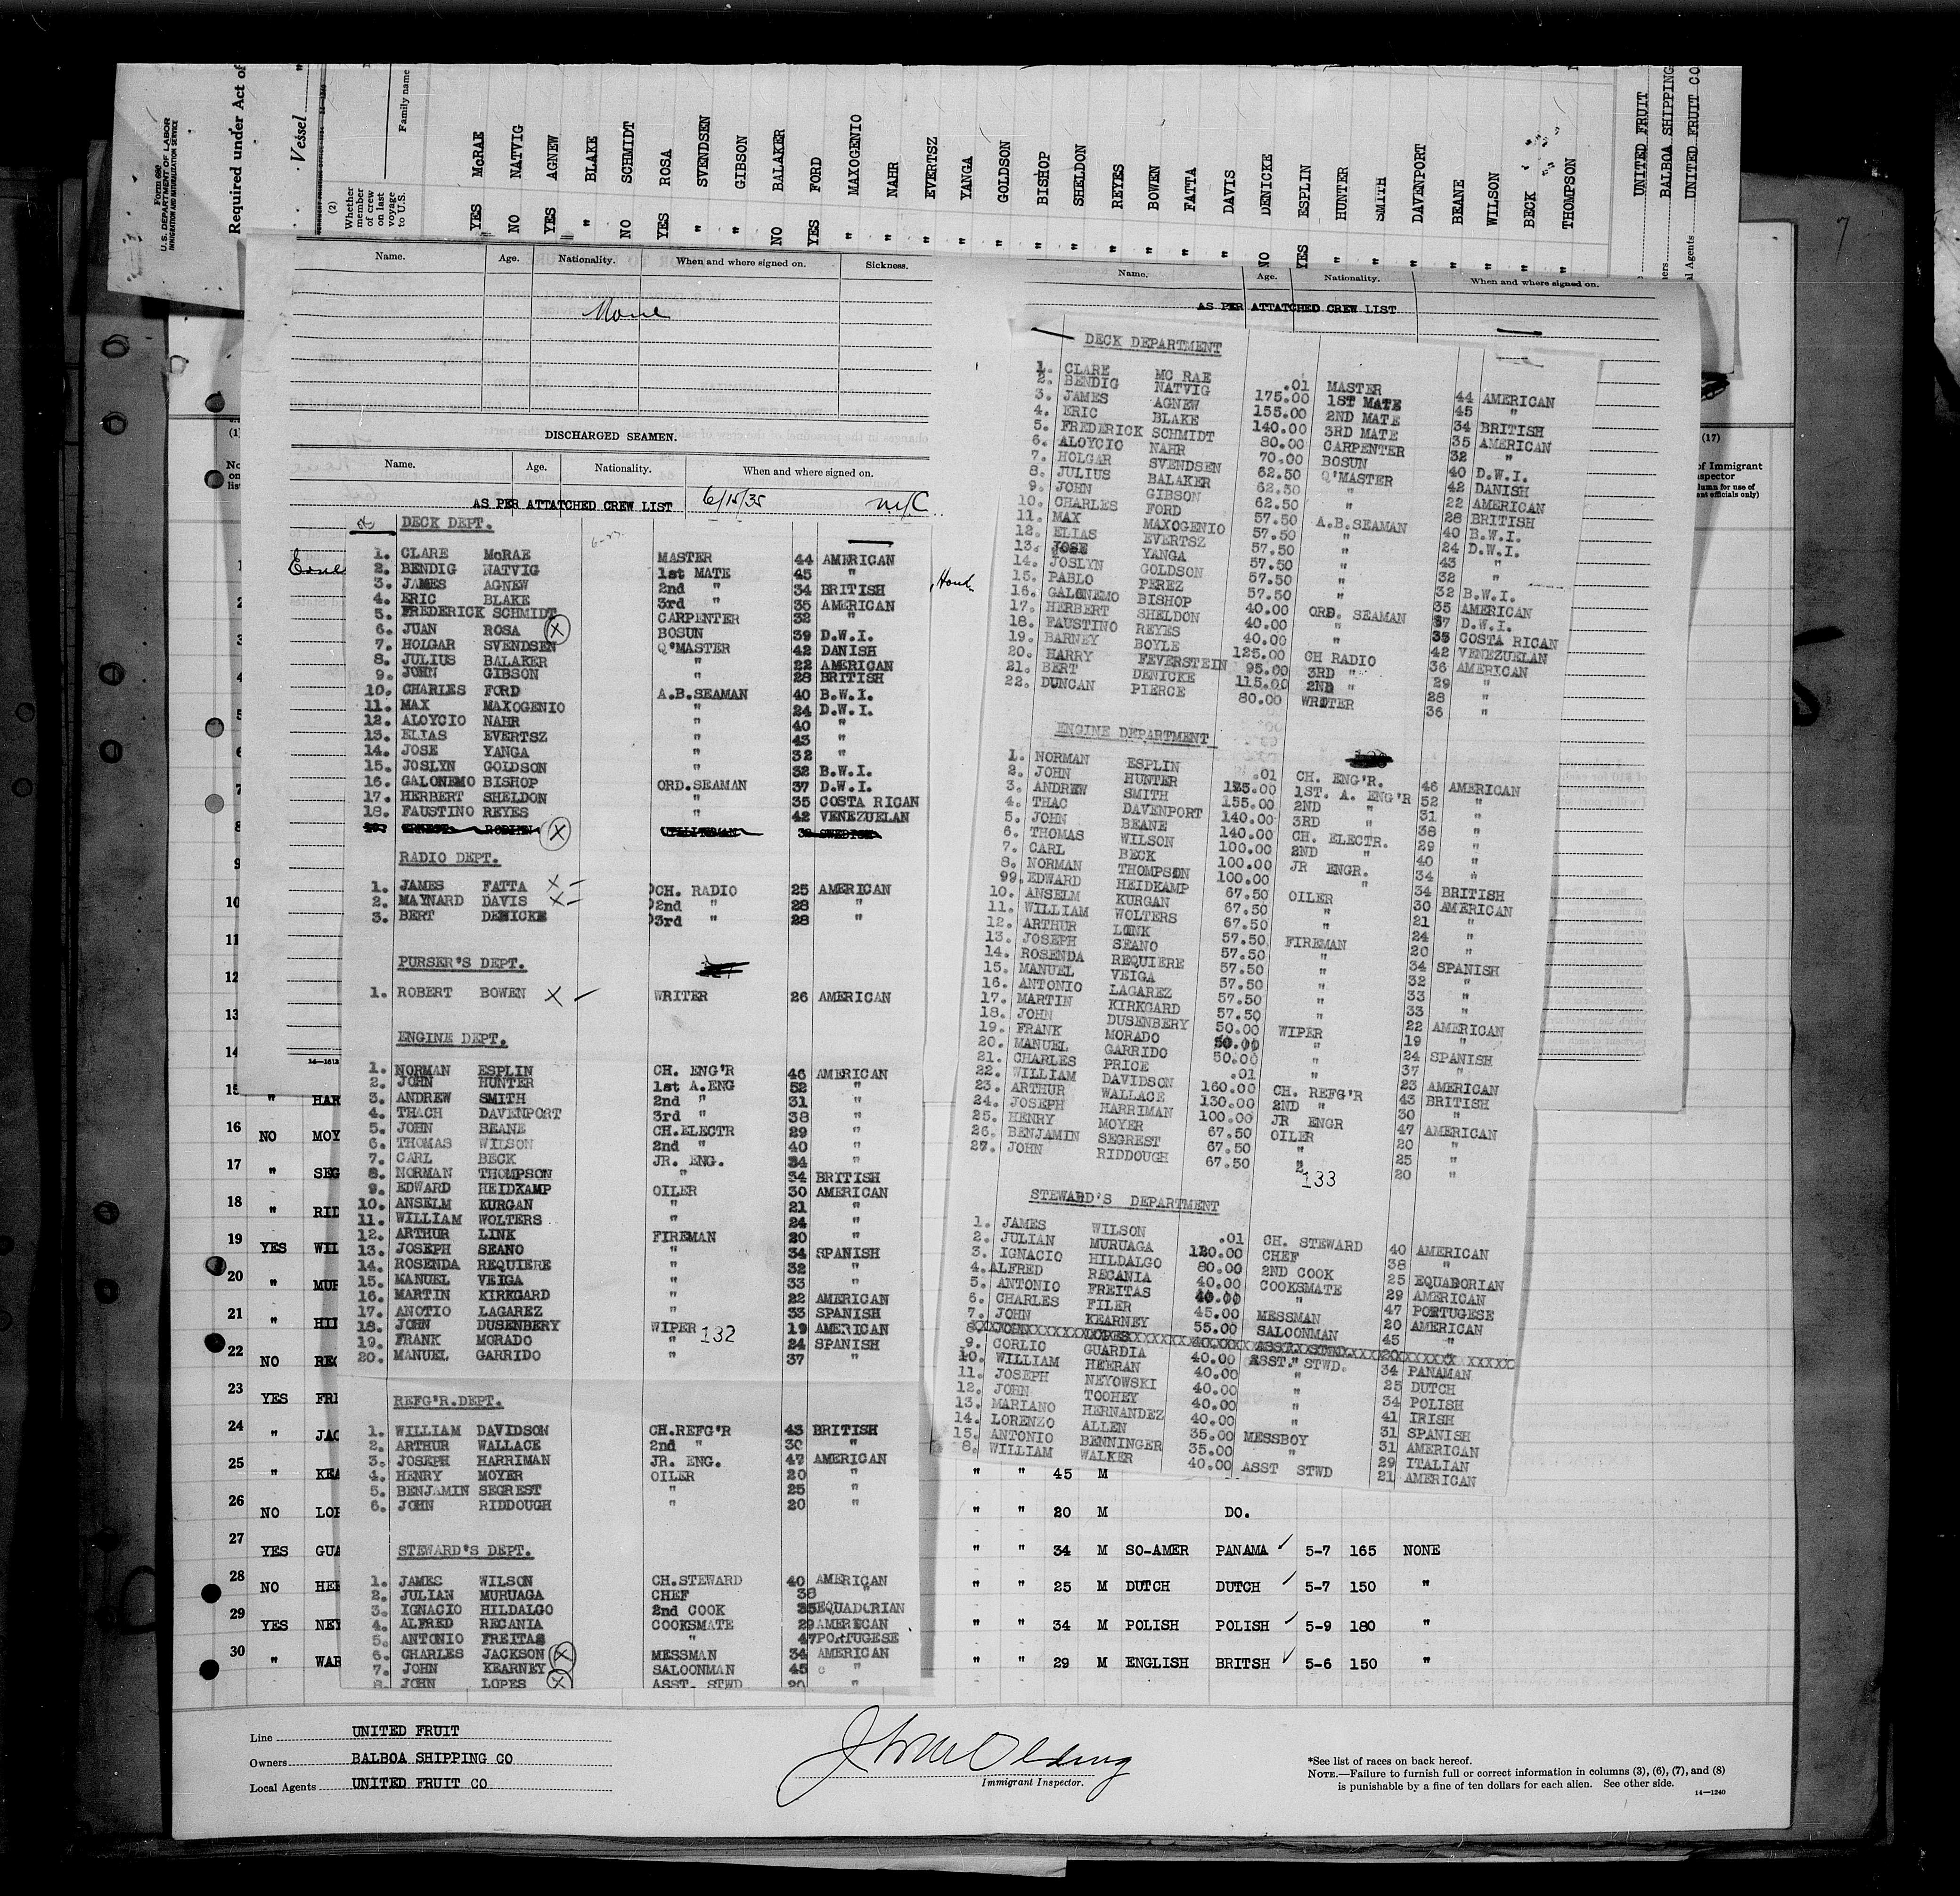 Form 680
U. S. DEPARTMENT OF LABOR
IMMIGRATION AND NATURALIZATION SERVICE
Required under Act of
Vessel
(2)
Whether member of crew on last voyage to U.S.
Family name
YES McRAE
NO NATVIG
YES AGNEW
" BLAKE
NO SCHMIDT
YES ROSA
" SVENDSEN
" GIBSON
NO BALAKER
YES FORD
" MAXOGENIO
" NAHR
" EVERTSZ
" YANGA
" GOLDSON
" BISHOP
" SHELDON
" REYES
" BOWEN
" FATTA
" DAVIS
NO DENICKE
YES ESPLIN
" HUNTER
" SMITH
" DAVENPORT
" BEANE
" WILSON
" BECK
" THOMPSON
UNITED FRUIT
BALBOA SHIPPING
UNITED FRUIT CO
Name. Age. Nationality. When and where signed on. Sickness.
None
DISCHARGED SEAMEN.
Name. Age. Nationality. When and where signed on.
AS PER ATTATCHED CREW LIST 6/15/35 NYC
DECK DEPT.
1. CLARE McRAE MASTER 44 AMERICAN
2. BENDIG NATVIG 1st MATE 45 "
3. JAMES AGNEW 2nd " 34 BRITISH
4. ERIC BLAKE 3rd " 35 AMERICAN
5. FREDERICK SCHMIDT CARPENTER 32 "
6. JUAN ROSA X BOSUN 39 D.W.I.
7. HOLGAR SVENDSEN Q'MASTER 42 DANISH
8. JULIUS BALAKER " 22 AMERICAN
9. JOHN GIBSON " 28 BRITISH
10. CHARLES FORD A.B.SEAMAN 40 B.W.I.
11. MAX MAXOGENIO " 24 D.W.I.
12. ALOYCIO NAHR " 40 "
13. ELIAS EVERTSZ " 43 "
14. JOSE YANGA " 32 "
15. JOSLYN GOLDSON " 32 B.W.I.
16. GALONEMO BISHOP ORD.SEAMAN 37 D.W.I.
17. HERBERT SHELDON " 35 COSTA RICAN
18. FAUSTINO REYES " 42 VENEZUELAN
19. ERNEST X UTILITEMAN 38 SWEDISH
RADIO DEPT.
1. JAMES FATTA X CH. RADIO 25 AMERICAN
2. MAYNARD DAVIS X 2nd " 28 "
3. BERT DENICKE 3rd " 28 "
PURSER'S DEPT.
1. ROBERT BOWEN X WRITER 26 AMERICAN
ENGINE DEPT.
1. NORMAN ESPLIN CH. ENG'R 46 AMERICAN
2. JOHN HUNTER 1st A.ENG 52 "
3. ANDREW SMITH 2nd " 31 "
4. THACH DAVENPORT 3rd " 38 "
5. JOHN BEANE CH.ELECTR 29 "
6. THOMAS WILSON 2nd " 40 "
7. CARL BECK JR. ENG. 34 "
8. NORMAN THOMPSON " 34 BRITISH
9. EDWARD HEIDKAMP OILER 30 AMERICAN
10. ANSELM KURGAN " 21 "
11. WILLIAM WOLTERS " 24 "
12. ARTHUR LINK FIREMAN 20 "
13. JOSEPH SEANO " 34 SPANISH
14. ROSENDA REQUIERE " 32 "
15. MANUEL VEIGA " 33 "
16. MARTIN KIRKGARD " 22 AMERICAN
17. ANOTIO LAGAREZ " 33 SPANISH
18. JOHN DUSENBERY WIPER 132 19 AMERICAN
19. FRANK MORADO " 24 SPANISH
20. MANUEL GARRIDO " 37 "
REFG'R.DEPT.
1. WILLIAM DAVIDSON CH.REFG'R 43 BRITISH
2. ARTHUR WALLACE 2nd " 30 "
3. JOSEPH HARRIMAN JR. ENG. 47 AMERICAN
4. HENRY MOYER OILER 20 "
5. BENJAMIN SEGREST " 25 "
6. JOHN RIDDOUGH " 20 "
STEWARD'S DEPT.
1. JAMES WILSON CH.STEWARD 40 AMERICAN
2. JULIAN MURUAGA CHEF 38 "
3. IGNACIO HILDALGO 2nd COOK 25 EQUADORIAN
4. ALFRED RECANIA COOKSMATE 29 AMERICAN
5. ANTONIO FREITAS " 47 PORTUGESE
6. CHARLES JACKSON X MESSMAN 34 AMERICAN
7. JOHN KEARNEY SALOONMAN 45 "
8. JOHN LOPES X ASST. STWD 20 "
Name. Age. Nationality. When and where signed on.
AS PER ATTATCHED CREW LIST
DECK DEPARTMENT
1. CLARE MC RAE .01 MASTER 44 AMERICAN
2. BENDIG NATVIG 175.00 1ST MATE 45 "
3. JAMES AGNEW 155.00 2ND MATE 34 BRITISH
4. ERIC BLAKE 140.00 3RD MATE 35 AMERICAN
5. FREDERICK SCHMIDT 80.00 CARPENTER 32 "
6. ALOYCIO NAHR 70.00 BOSUN 40 D.W.I.
7. HOLGAR SVENDSEN 62.50 Q'MASTER 42 DANISH
8. JULIUS BALAKER 62.50 " 22 AMERICAN
9. JOHN GIBSON 62.50 " 28 BRITISH
10. CHARLES FORD 57.50 A.B.SEAMAN 40 B.W.I.
11. MAX MAXOGENIO 57.50 " 24 D.W.I.
12. ELIAS EVERTSZ 57.50 " 43 "
13. JOSE YANGA 57.50 " 32 "
14. JOSLYN GOLDSON 57.50 " 32 B.W.I.
15. PABLO PEREZ 40.00 ORD. SEAMAN 35 AMERICAN
16. GALONEMO BISHOP 40.00 " 37 D.W.I.
17. HERBERT SHELDON 40.00 " 35 COSTA RICAN
18. FAUSTINO REYES 42 VENEZUELAN
19. BARNEY BOYLE 125.00 CH RADIO 36 AMERICAN
20. HARRY FEVERSTEIN 95.00 3RD " 29 "
21. BERT DENICKE 115.00 2ND " 28 "
22. DUNCAN PIERCE 80.00 WRITER 36 "
ENGINE DEPARTMENT
1. NORMAN ESPLIN .01 CH. ENG'R. 46 AMERICAN
2. JOHN HUNTER 1ST. A. ENG'R 52 "
3. ANDREW SMITH 155.00 2ND " 31 "
4. THAC DAVENPORT 140.00 3RD " 38 "
5. JOHN BEANE 140.00 CH. ELECTR. 29 "
6. THOMAS WILSON 100.00 2ND " 40 "
7. CARL BECK 100.00 JR ENGR. 34 "
8. NORMAN THOMPSON 100.00 " 34 BRITISH
99. EDWARD HEIDKAMP 67.50 OILER 30 AMERICAN
10. ANSELM KURGAN 67.50 " 21 "
11. WILLIAM WOLTERS 67.50 " 24 "
12. ARTHUR LINK 57.50 FIREMAN 20 "
13. JOSEPH SEANO 57.50 " 34 SPANISH
14. ROSENDA REQUIERE 57.50 " 32 "
15. MANUEL VEIGA 57.50 " 33 "
16. ANTONIO LAGAREZ 57.50 " 33 "
17. MARTIN KIRKGARD 57.50 " 22 AMERICAN
18. JOHN DUSENBERY 50.00 WIPER 19 "
19. FRANK MORADO 50.00 " 24 SPANISH
20. MANUEL GARRIDO 50.00 " 37 "
21. CHARLES PRICE .01 " 23 AMERICAN
22. WILLIAM DAVIDSON 160.00 CH. REFG'R 43 BRITISH
23. ARTHUR WALLACE 130.00 2ND " 30 "
24. JOSEPH HARRIMAN 100.00 JR ENGR 47 AMERICAN
25. HENRY MOYER 67.50 OILER 20 "
26. BENJAMIN SEGREST 67.50 " 25 "
27. JOHN RIDDOUGH 67.50 " 20 "
133
STEWARD'S DEPARTMENT
1. JAMES WILSON .01 CH. STEWARD 40 AMERICAN
2. JULIAN MURUAGA 120.00 CHEF 38 "
3. IGNACIO HILDALGO 80.00 2ND COOK 25 EQUADORIAN
4. ALFRED RECANIA 40.00 COOKSMATE 29 AMERICAN
5. ANTONIO FREITAS 40.00 " 47 PORTUGESE
6. CHARLES FILER 45.00 MESSMAN 20 AMERICAN
7. JOHN KEARNEY 55.00 SALOONMAN 45 "
8. JOHN LOPES 40.00 ASST. STWD. 20 "
9. CORLIO GUARDIA 40.00 ASST. STWD. 34 PANAMAN
10. WILLIAM HEERAN 40.00 " 25 DUTCH
11. JOSEPH NEYOWSKI 40.00 " 34 POLISH
12. JOHN TOOHEY 40.00 " 41 IRISH
13. MARIANO HERNANDEZ 40.00 " 31 SPANISH
14. LORENZO ALLEN 35.00 MESSBOY 31 AMERICAN
15. ANTONIO BENNINGER 35.00 " 29 ITALIAN
8. WILLIAM WALKER 40.00 ASST STWD 21 AMERICAN
(1)
No. on list
(17)
of Immigrant Inspector
1
2
3
4
5
6
7
8
9
10
11
12
13
14
14—1212
15 " HAR
16 NO MOY
17 " SEG
18 " RID
19 YES WIL
20 " MUR
21 " HIL
22 NO REC
23 YES FRI
24 " JAC
25 " KEA " " 45 M
26 NO LOP " " 20 M DO.
27 YES GUA " " 34 M SO-AMER PANAMA ✓ 5-7 165 NONE
28 NO HEE " " 25 M DUTCH DUTCH ✓ 5-7 150 "
29 YES NEY " " 34 M POLISH POLISH ✓ 5-9 180 "
30 " WAR " " 29 M ENGLISH BRITSH ✓ 5-6 150 "
Line UNITED FRUIT
Owners BALBOA SHIPPING CO
Local Agents UNITED FRUIT CO
Immigrant Inspector.
*See list of races on back hereof.
NOTE.—Failure to furnish full or correct information in columns (3), (6), (7), and (8)
is punishable by a fine of ten dollars for each alien. See other side.
14—1240